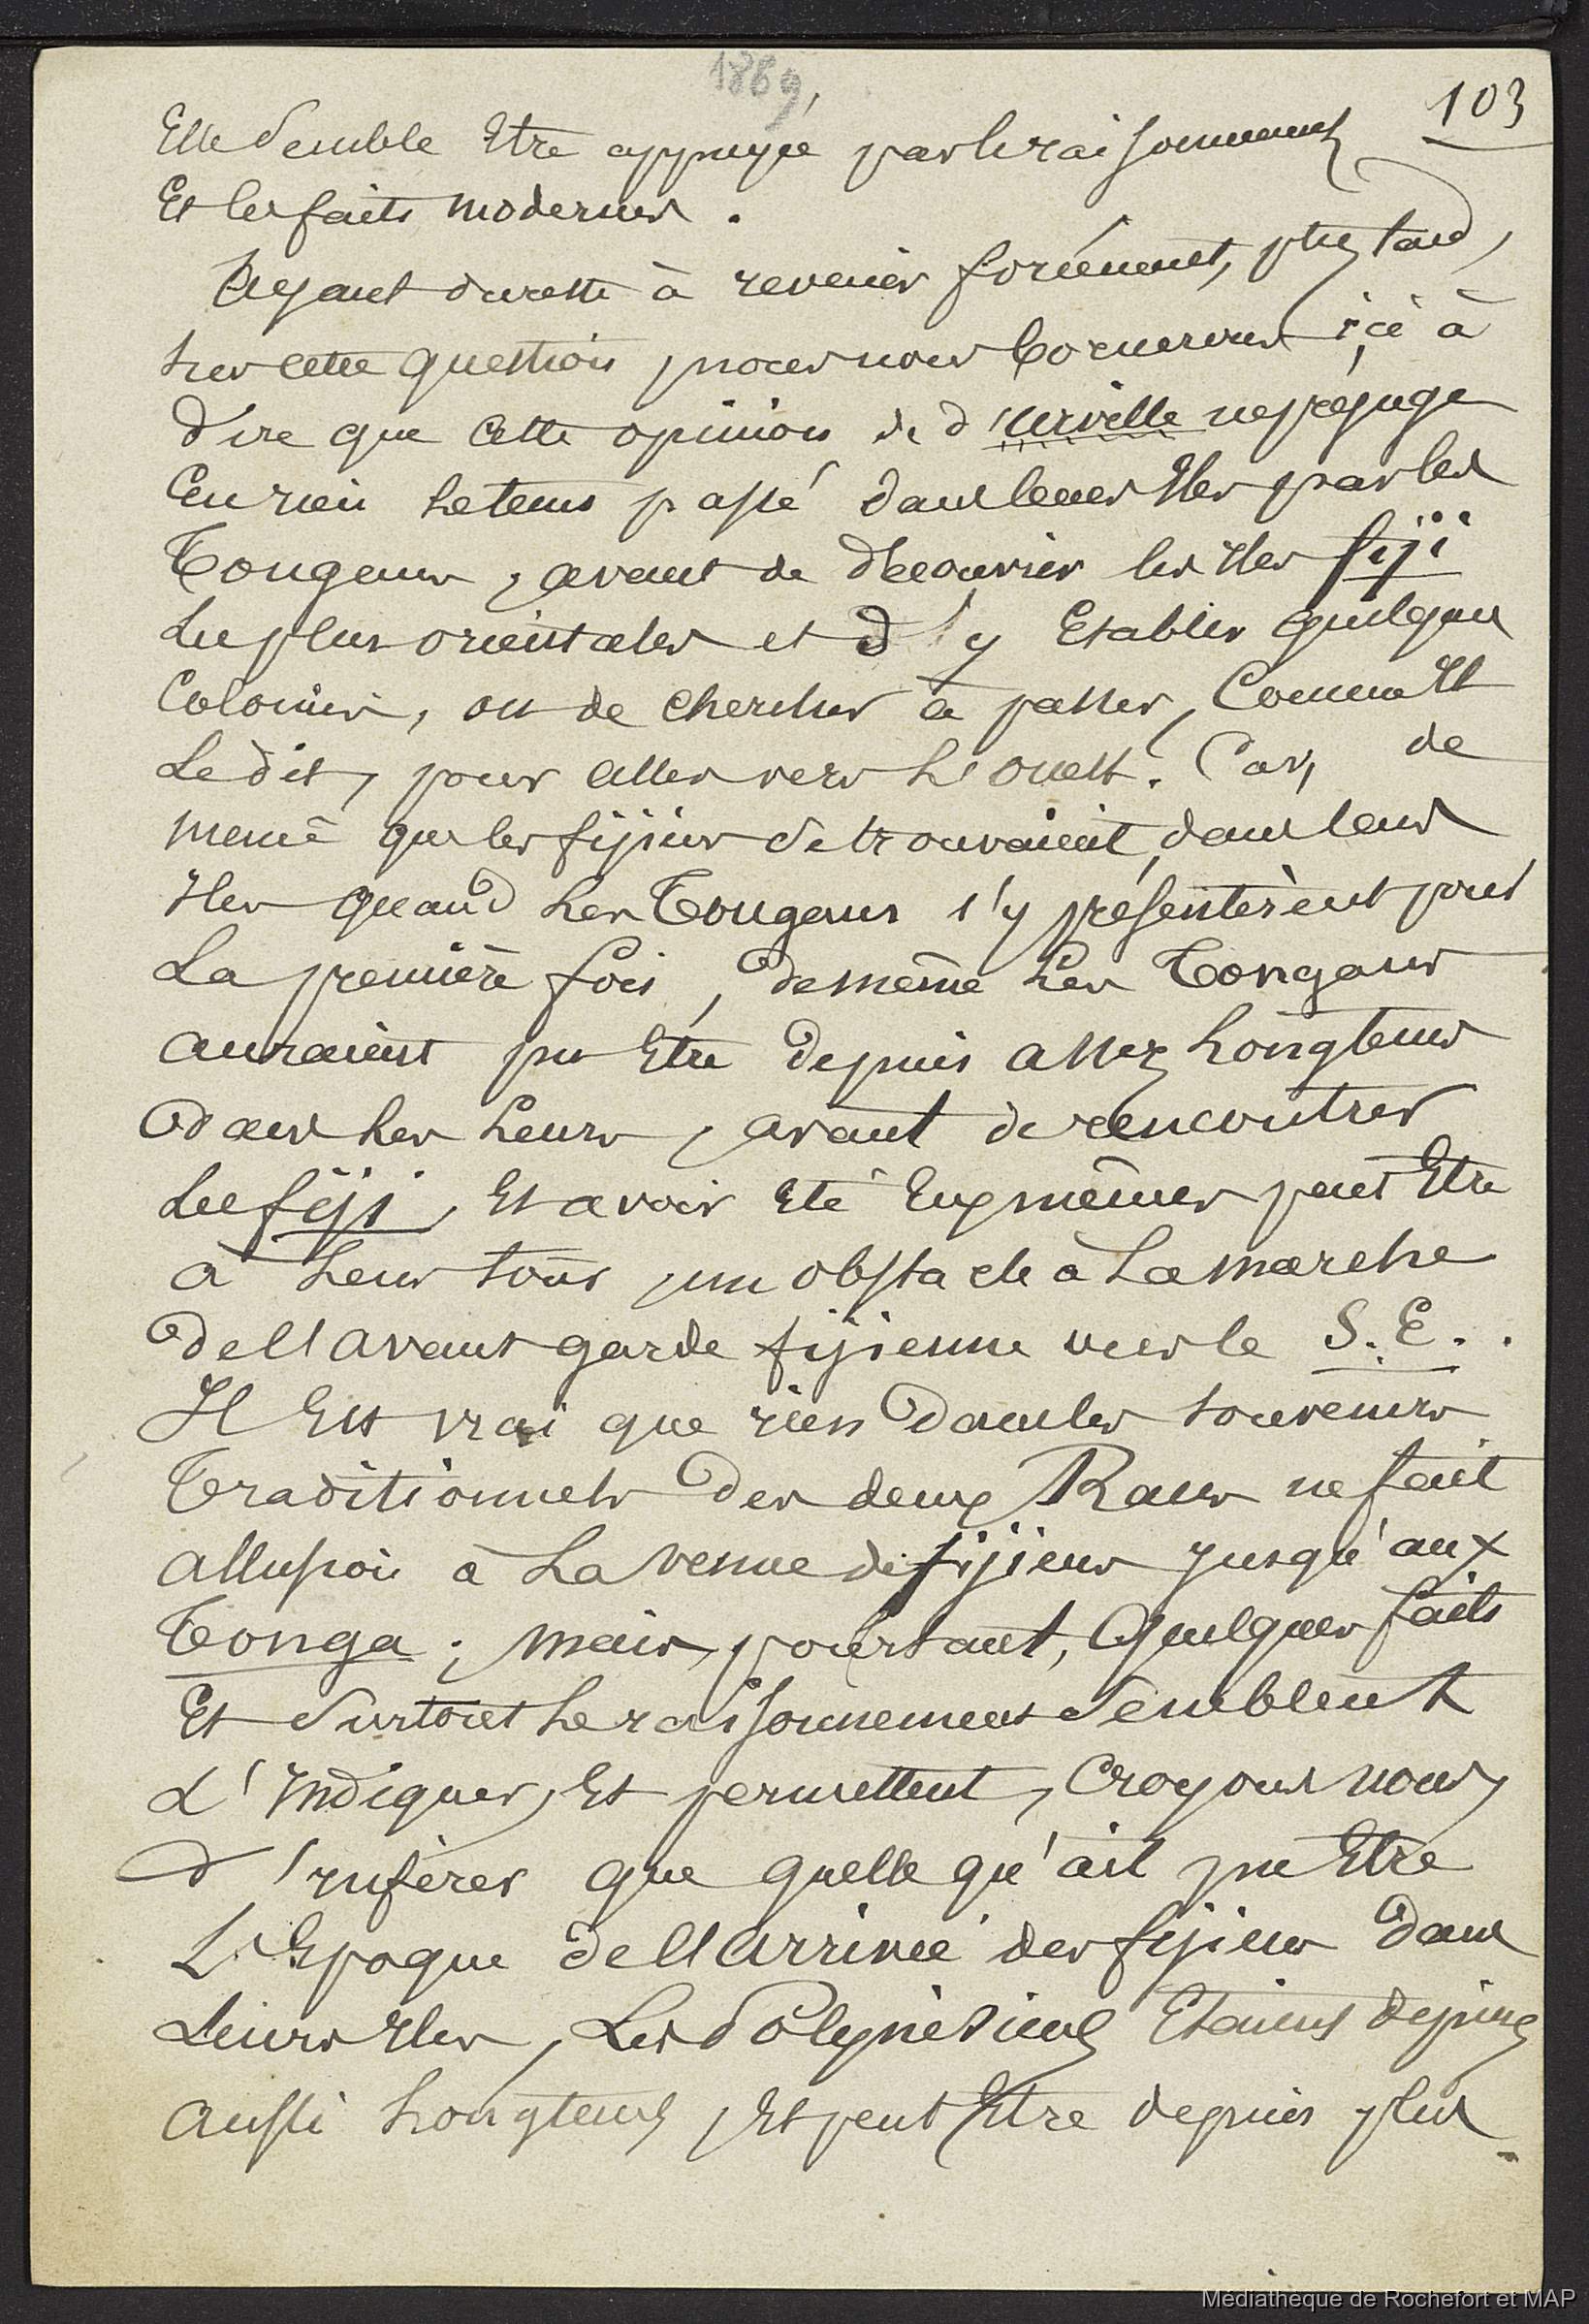 1869
103
Elle semble Etre appuyée par le raisonnement
Et les faits modernes.
Ayant du reste à revenir forcément, plus tard,
sur cette question, nous nous bornerons ici à
dire que cette opinion de d'urville ne préjuge
En rien le tems passé dans leurs Iles par les
Tongans, avant de découvrir les Iles fiji
Les plus orientales et d'y Etablir quelques
Colonies, ou de chercher à passer, Comme Il
Le dit, pour aller vers L'ouest. Car, de
meme que les fijiens se trouvaient, dans leurs
Iles quand Les Tongans s'y présentèrent pour
La première fois, de même Les Tongans
auraient pu Etre depuis assez Longtems
dans les Leurs, avant de rencontrer
Les fiji, Et avoir Eté Eux mêmes peut Etre
à Leur tour, un obstacle à La marche
de l'avant garde fijienne vers le S.E..
Il Est vrai que rien dans les souvenirs
Traditionnels des deux Races ne fait
allusion à La venue de fijiens jusqu'aux
Tonga; mais, pourtant, Quelques faits
Et surtout Le raisonnement semblent
L'Indiquer, Et permettent, Croyons nous,
d'Inférer que quelle qu'ait pu Etre
L'Epoque de l'arrivée des fijiens dans
Leurs Iles, Les Polynésiens Etaient depuis
aussi Longtems, Et peut Etre depuis plus
Médiathèque de Rochefort et MAP